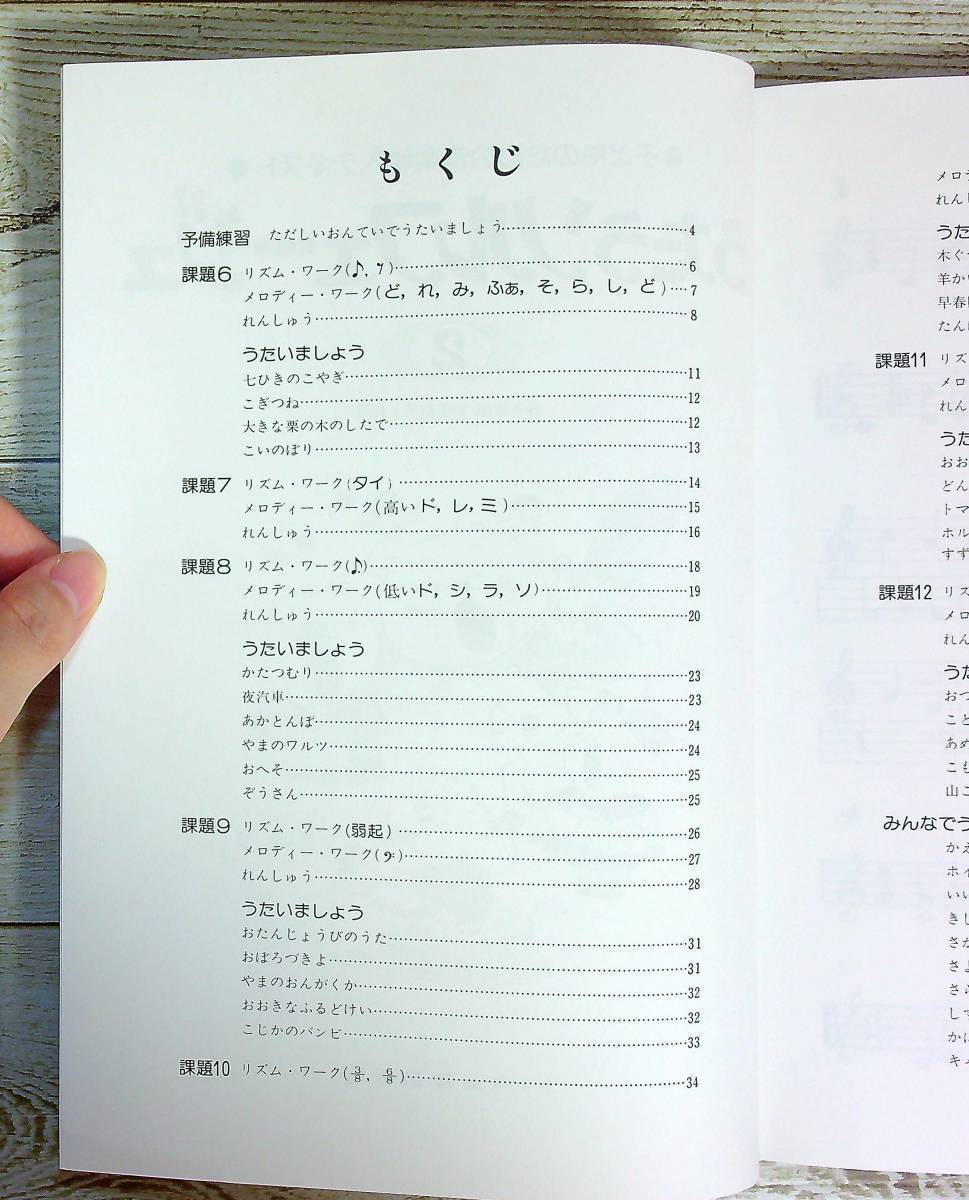 もくじ
予備練習 ただしいおんていでうたいましょう……4
課題6 リズム・ワーク(♪, 𝄾)……6
メロディー・ワーク(ど, れ, み, ふぁ, そ, ら, し, ど)……7
れんしゅう……8
うたいましょう
七ひきのこやぎ……11
こぎつね……12
大きな栗の木のしたで……12
こいのぼり……13
課題7 リズム・ワーク(タイ)……14
メロディー・ワーク(高いド, レ, ミ)……15
れんしゅう……16
課題8 リズム・ワーク(♪.)……18
メロディー・ワーク(低いド, シ, ラ, ソ)……19
れんしゅう……20
うたいましょう
かたつむり……23
夜汽車……23
あかとんぼ……24
やまのワルツ……24
おへそ……25
ぞうさん……25
課題9 リズム・ワーク(弱起)……26
メロディー・ワーク(𝄢)……27
れんしゅう……28
うたいましょう
おたんじょうびのうた……31
おぼろづきよ……31
やまのおんがくか……32
おおきなふるどけい……32
こじかのバンビ……33
課題10 リズム・ワーク(3/8, 6/8)……34
メロ
れん
うた
木ぐ
羊か
早春
たん
課題11 リズ
メロ
れん
うた
おお
どん
トマ
ホル
すず
課題12 リズ
メロ
れん
うた
おつ
こと
あめ
こも
山こ
みんなでう
かえ
ホイ
いい
きし
さか
さよ
さら
しず
かに
キャ